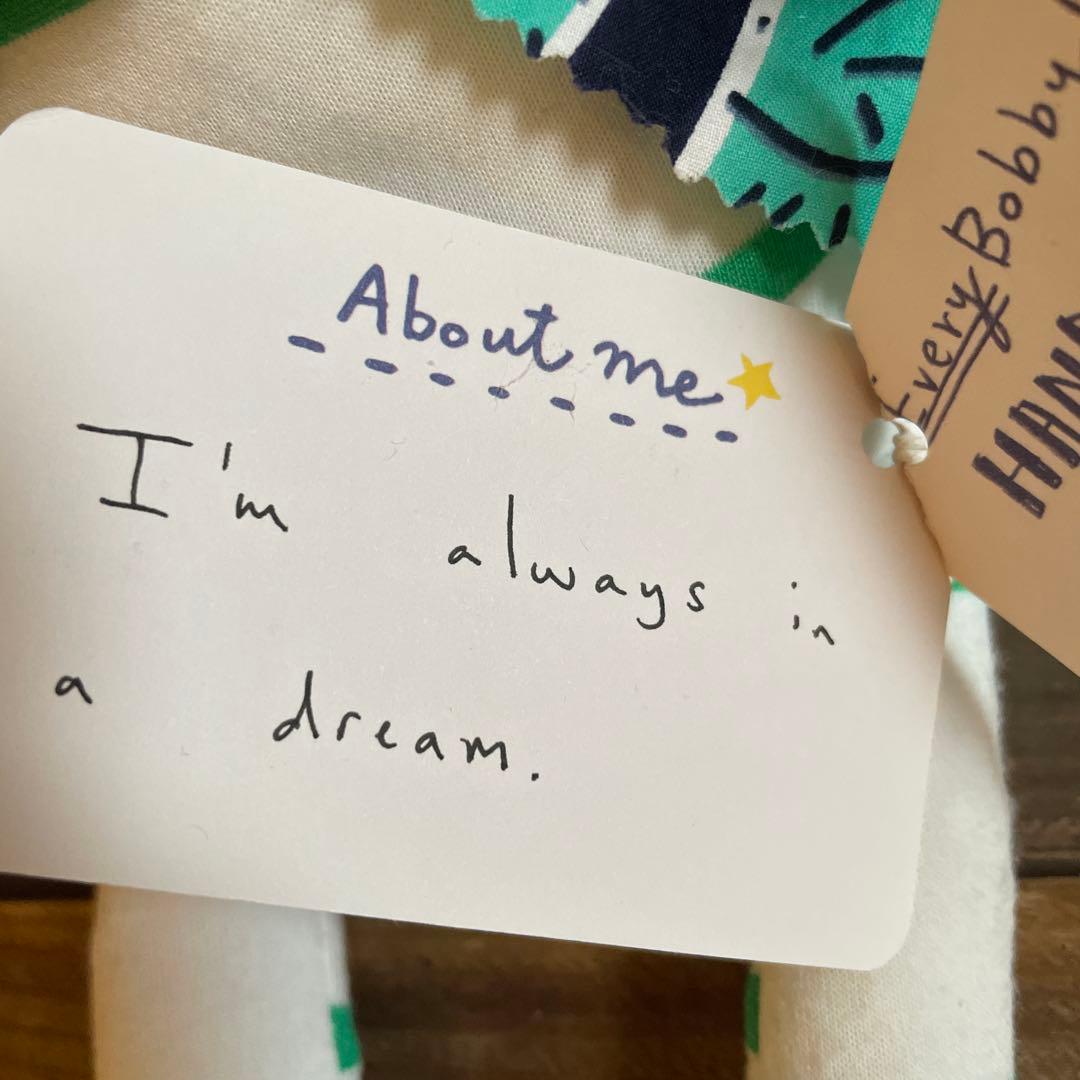 About me
I'm always in
a dream.
Every Bobby